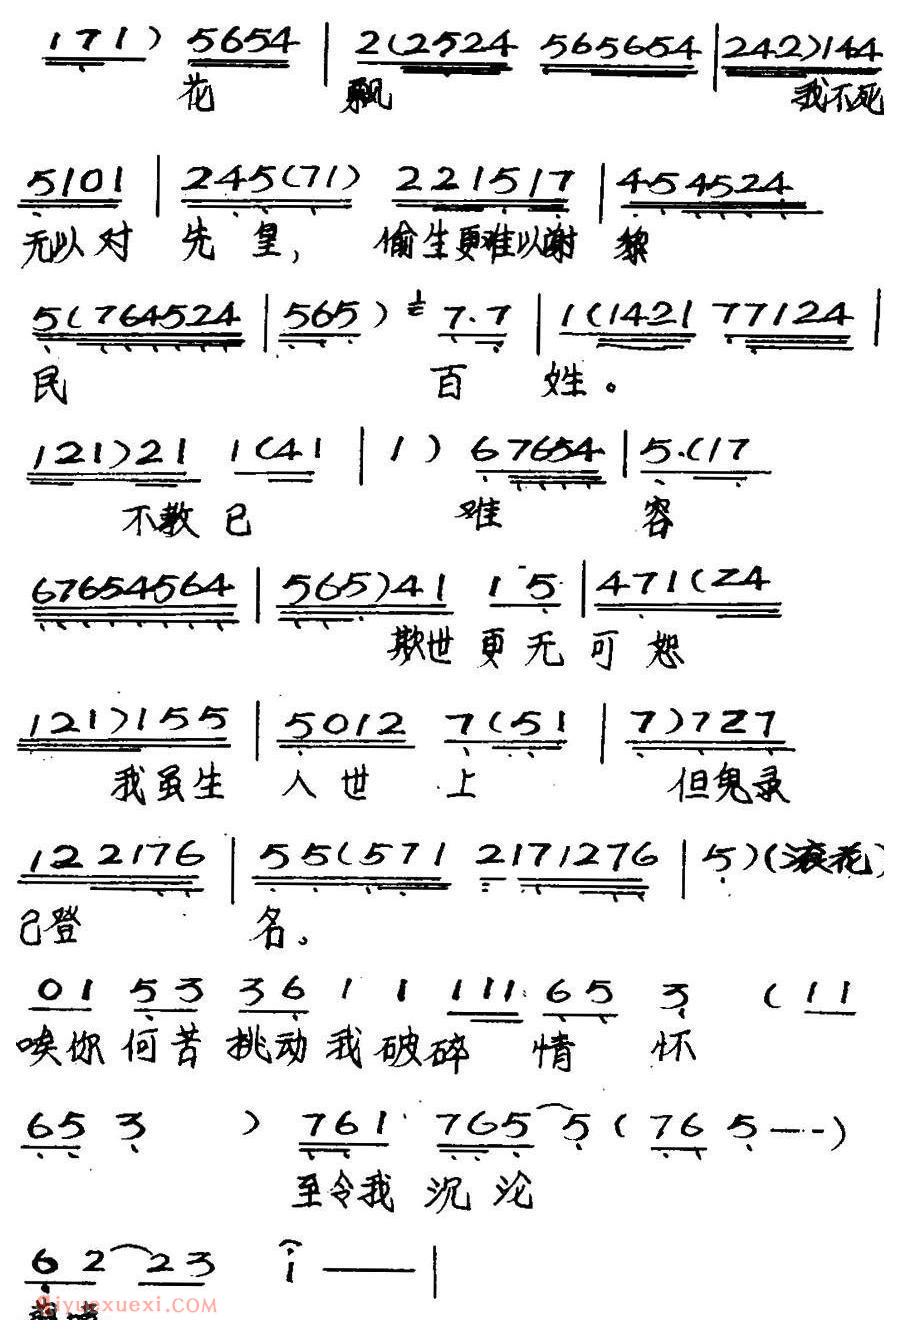 1 7 1 ) 5654 | 2(2524 565654 | 242)144
花 飘 我不死
5101 | 245(71) 221517 | 454524
无以对 先皇, 偷生更难以谢 黎
5(764524 | 565) 7.7 | 1(1421 77124 |
民 百 姓。
121)21 1(41 | 1 ) 67654 | 5.(17
不教已 难 容
67654564 | 565)41 1 5 | 471(24
欺世更无可恕
121)155 | 5012 7(51 | 7)727
我虽生 人世 上 但鬼录
122176 | 55(571 2171276 | 5)(滚花)
已登 名。
01 53 36 1 1 111 65 3 (11
唉你何苦挑动我破碎 情 怀
65 3 ) 761 765 5 (76 5--- )
至令我沉沦
6 2 23 i —— |
Qiyuexuexi.COM